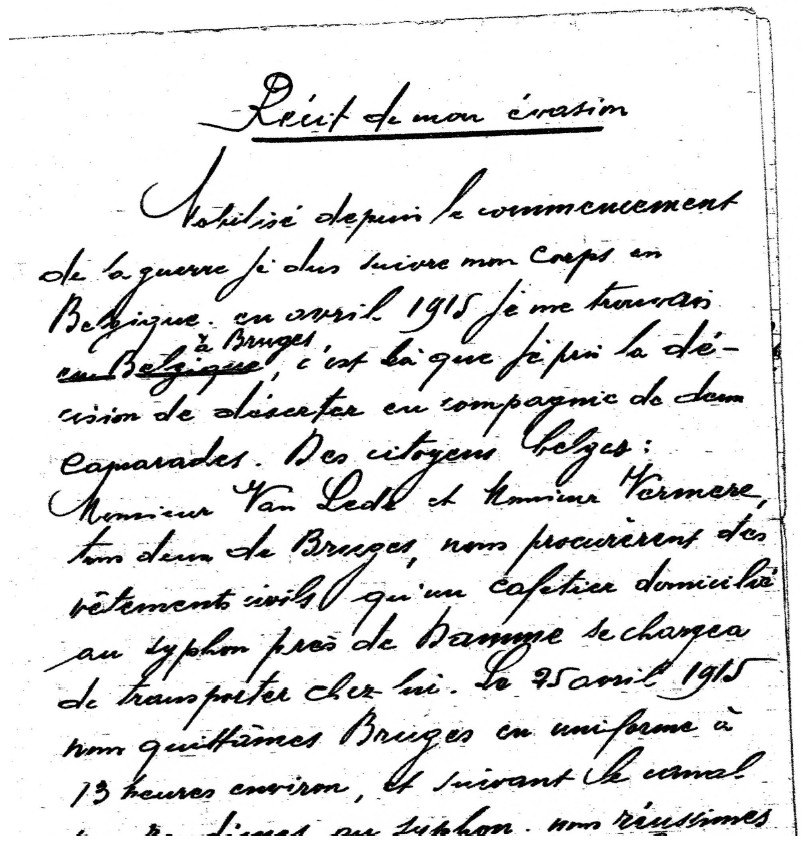 Récit de mon évasion
Mobilisé depuis le commencement
de la guerre je dus suivre mon corps en
Belgique. en avril 1915 je me trouvais
à Bruges
en Belgique, c'est là que je pris la dé-
cision de déserter en compagnie de deux
camarades. Des citoyens belges :
Monsieur Van Lede et Monsieur Vermere,
tous deux de Bruges, nous procurèrent des
vêtements civils qu'un cafetier domicilié
au syphon près de Damme se chargea
de transporter chez lui. Le 25 avril 1915
nous quittâmes Bruges en uniforme à
13 heures environ, et suivant le canal
au syphon. nous réussimes